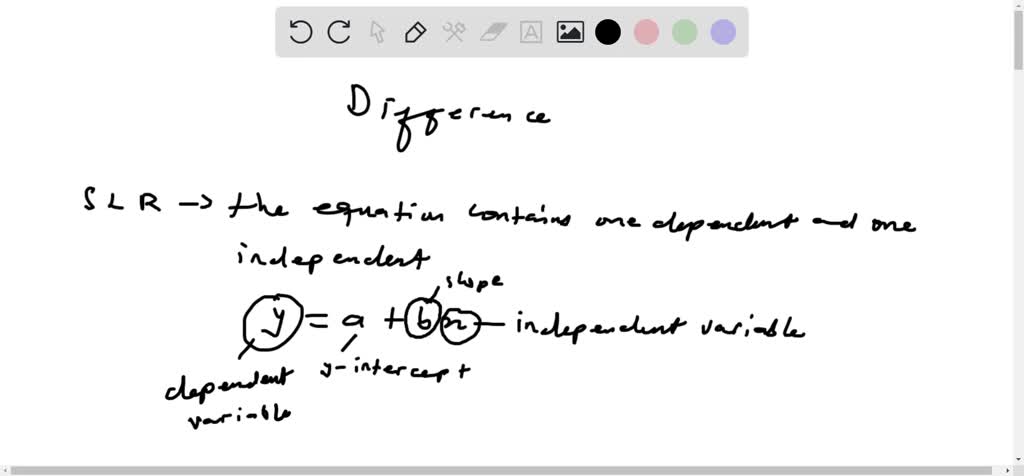 Difference
SLR → the equation contains one dependent and one
independent
slope
y = a + bx — independent variable
y-intercept
dependent
variable